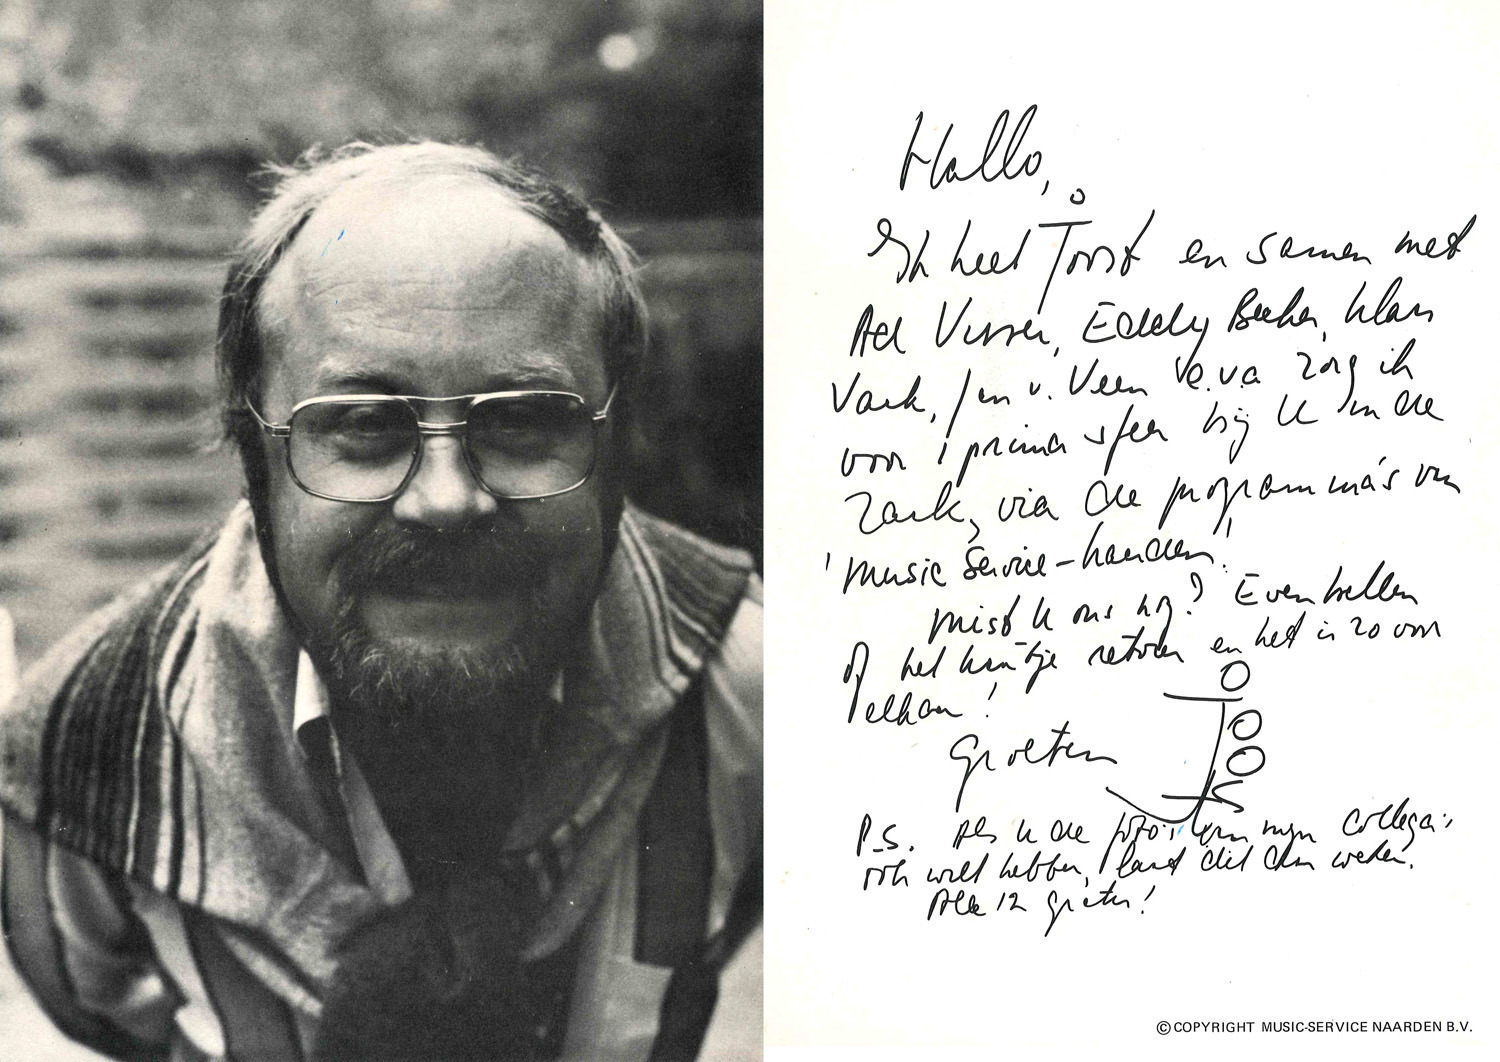 Hallo,
Ik heet Joost en samen met
Ad Visser, Eddy Becker, Klaas
Vaak, Jan v. Veen e.v.a zorg ik
voor 'n prima sfeer bij U in de
zaak, via de programma's van
'Music Service-Naarden'.
Mist U ons nog? Even bellen
of het kaartje retour en het is zo voor
elkaar!
Groeten
Joost
P.S. Als U de foto's van mijn collega's
ook wilt hebben, laat dit dan weten.
Alle 12 gratis!
© COPYRIGHT MUSIC-SERVICE NAARDEN B.V.